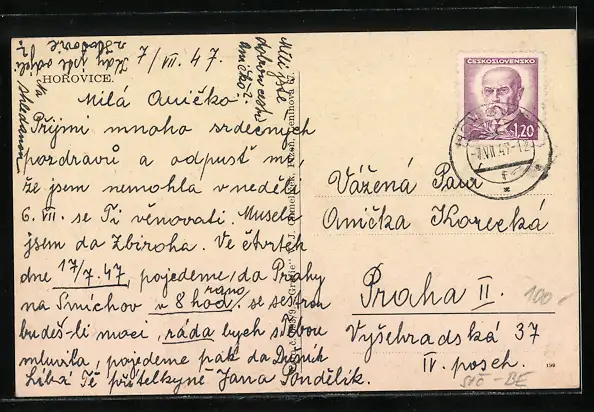 HOŘOVICE.
7/VII. 47.
Milá Aničko!
Přijmi mnoho srdečných
pozdravů a odpusť mi,
že jsem nemohla v neděli
6. VII. se Ti věnovati. Musela
jsem do Zbiroha. Ve čtvrtek
dne 17/7.47. pojedeme, do Prahy
na Smíchov v 8 hod. ráno se sestrou
budeš-li moci, ráda bych s Tebou
mluvila, pojedeme pak do
Líbá Tě přítelkyně Jana Pondělík.
Na shledanou
Měli jste
dobrou cestu
Aničko?
ČESKOSLOVENSKO
1,20
Vážená Paní
Anička Korecká
Praha II.
Vyšehradská 37
IV. posch.
100,-
199